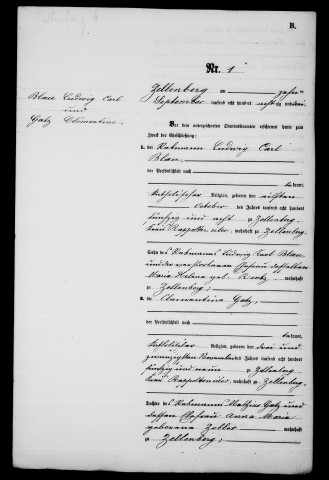 B.
Nr. 1
Zellenberg am zehn
September tausend acht hundert achtzig und
Blau Ludwig Carl
und
Gatz Clementine.
Vor dem unterzeichneten Standesbeamten erschienen heute zum
Zweck der Eheschließung:
1. der Rebmann Ludwig Carl
Blau,
der Persönlichkeit nach
kannt,
katholischer Religion, geboren den ersten
October des Jahres tausend acht hundert
fünfzig und acht zu Zellenberg,
Kreis Rappoltsweiler, wohnhaft zu Zellenberg,
Sohn des Rebmanns Ludwig Carl Blau
und der verstorbenen Ehefrau desselben
Maria Helena geb. wohnhaft
zu Zellenberg;
2. die Clementine Gatz,
der Persönlichkeit nach
kannt,
katholischer Religion, geboren den drei und
zwanzigsten November des Jahres tausend acht hundert
fünfzig und neun zu Zellenberg
Kreis Rappoltsweiler, wohnhaft zu Zellenberg,
Tochter des Rebmanns Mathias Gatz und
dessen Ehefrau Anna Maria
geborene Zobler wohnhaft
zu Zellenberg;